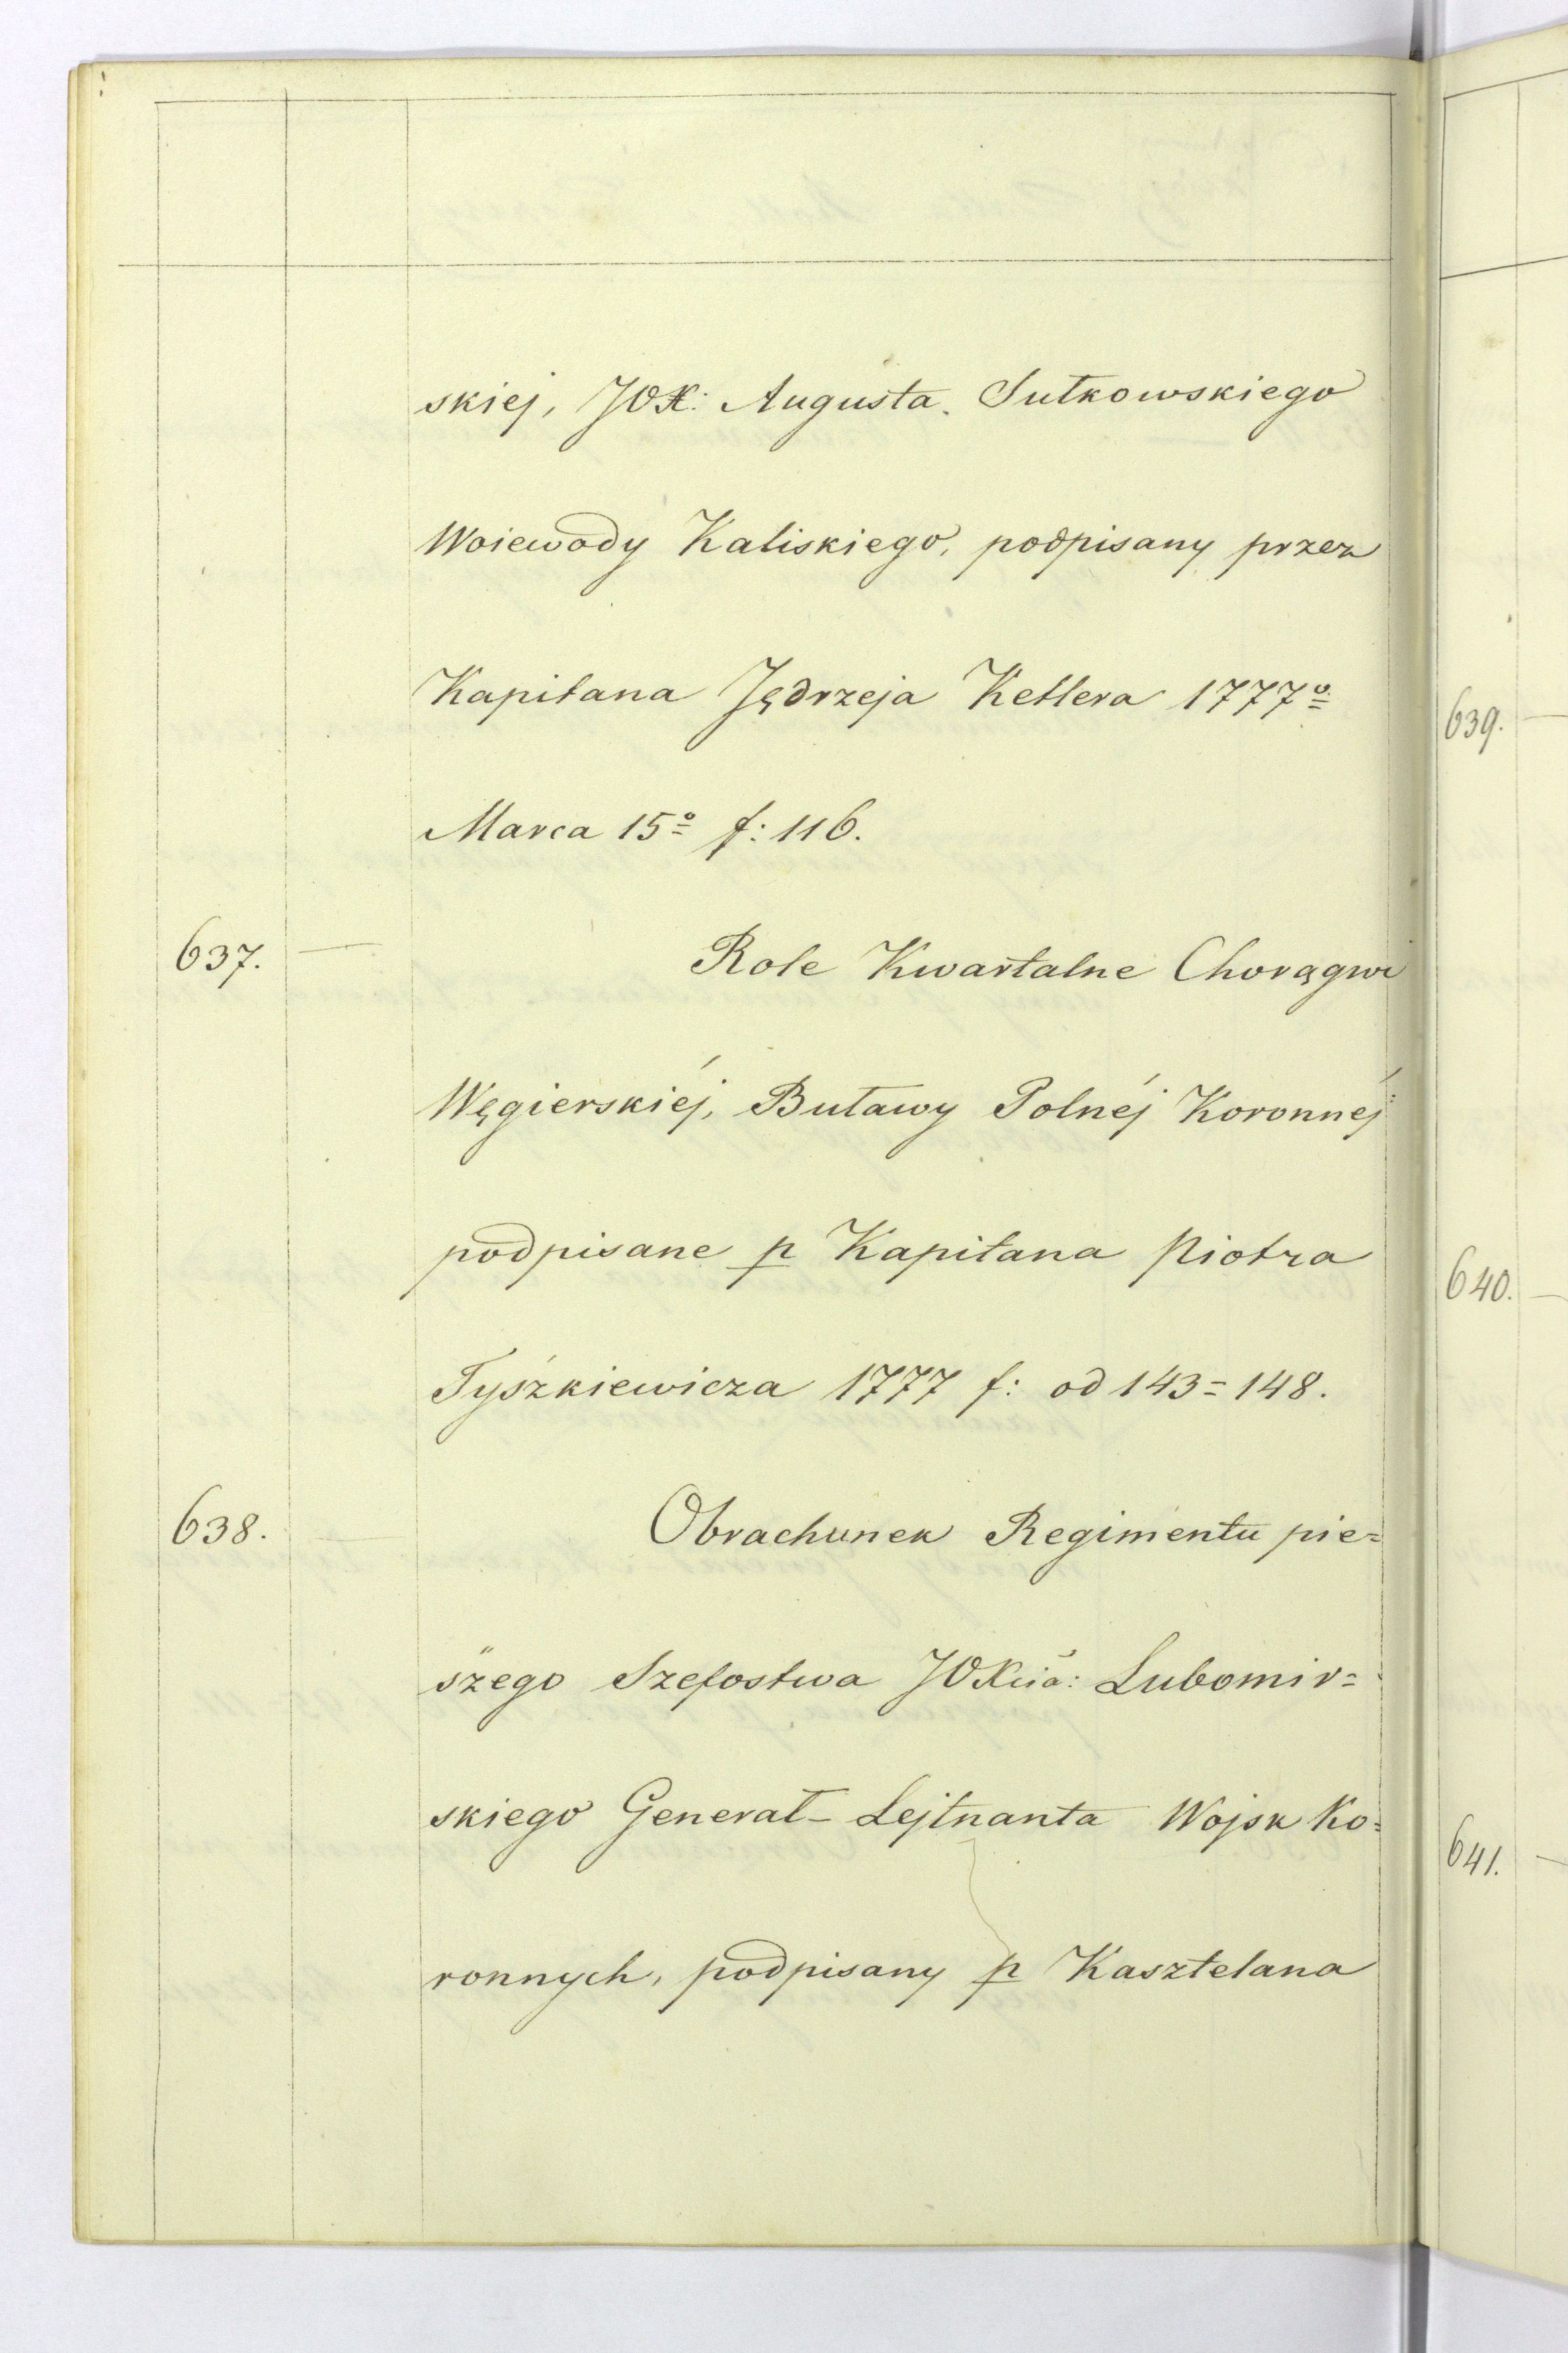 skiej, JOX: Augusta Sułkowskiego
Woiewody Kaliskiego, podpisany przez
Kapitana Jędrzeja Ketlera 1777º
Marca 15º f: 116.
637. — Role Kwartalne Chorągwi
Węgierskiéj, Buławy Polnéj Koronnéj
podpisane p Kapitana Piotra
Tyszkiewicza 1777 f: od 143=148.
638. — Obrachunek Regimentu pie=
szego Szefostwa JOXcia: Lubomir=
skiego Generał-Lejtnanta Wojsk Ko=
ronnych, podpisany p Kasztelana
639.
640.
641.